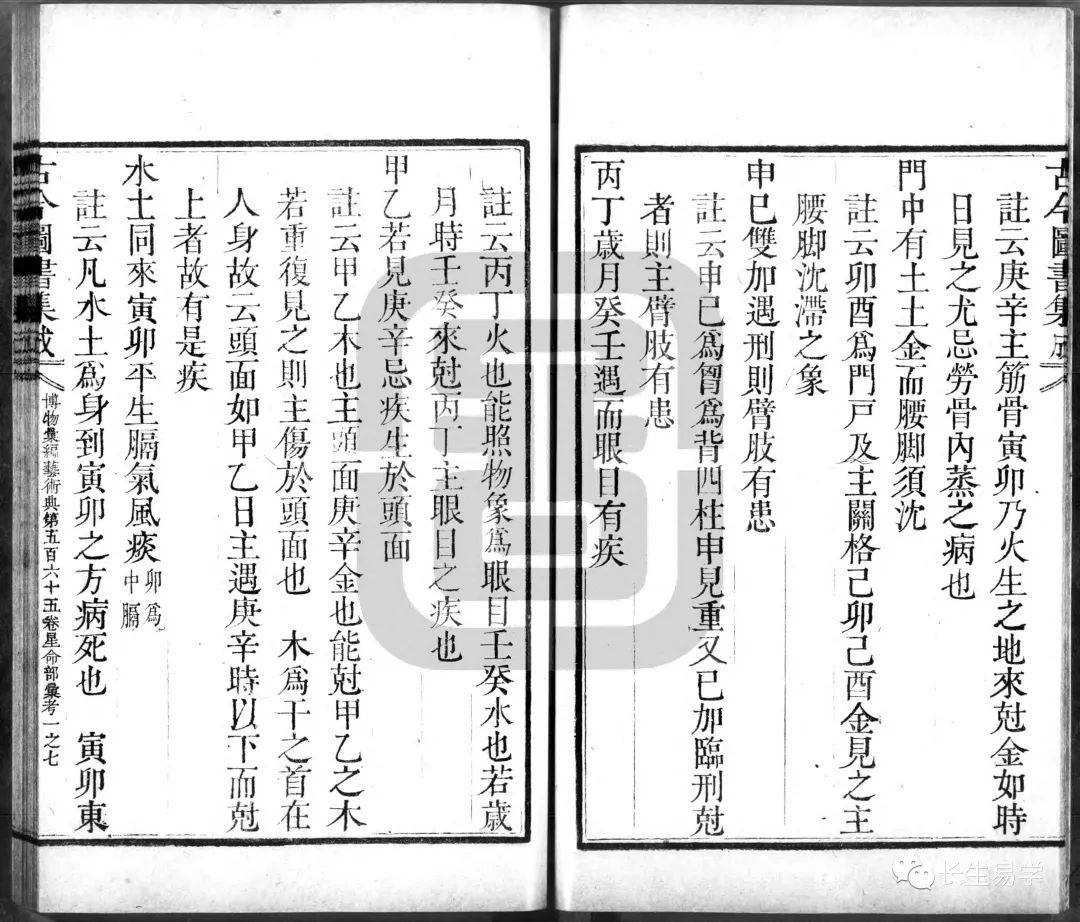 古今圖書集成
註云庚辛主筋骨寅卯乃火生之地來尅金如時
日見之尤忌勞骨內蒸之病也
門中有土土金而腰脚須沈
註云卯酉爲門戸及主關格己卯己酉金見之主
腰脚沈滯之象
申巳雙加遇刑則臂肢有患
註云申巳爲胷爲背四柱申見重又巳加臨刑尅
者則主臂肢有患
丙丁歲月癸壬遇而眼目有疾
註云丙丁火也能照物象爲眼目壬癸水也若歲
月時壬癸來尅丙丁主眼目之疾也
甲乙若見庚辛忌疾生於頭面
註云甲乙木也主頭面庚辛金也能尅甲乙之木
若重復見之則主傷於頭面也　木爲干之首在
人身故云頭面如甲乙日主遇庚辛時以下而尅
上者故有是疾
水土同來寅卯平生膈氣風痰卯爲中膈
註云凡水土爲身到寅卯之方病死也　寅卯東
古今圖書集成
博物彙編藝術典第五百六十五卷星命部彙考一之七
长生易学